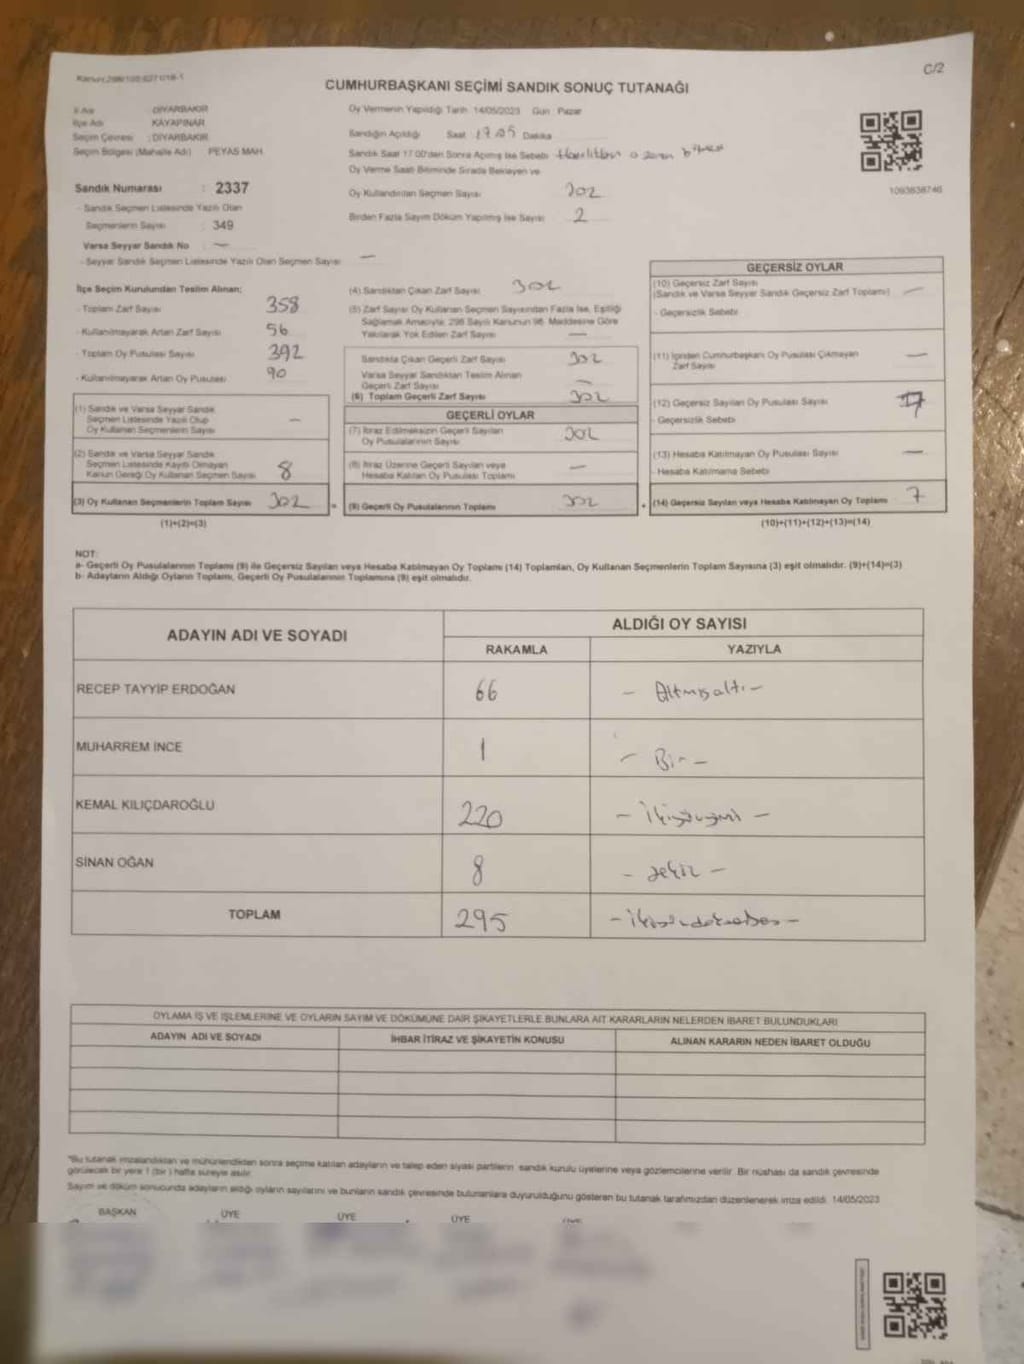 C/2
CUMHURBAŞKANI SEÇİMİ SANDIK SONUÇ TUTANAĞI
İl Adı DİYARBAKIR
İlçe Adı KAYAPINAR
Seçim Çevresi : DİYARBAKIR
Seçim Bölgesi (Mahalle Adı) PEYAS MAH.
Oy Vermenin Yapıldığı Tarih 14/05/2023 Gün : Pazar
Sandığın Açıldığı Saat 17 05 Dakika
Sandık Saat 17:00'den Sonra Açılmış İse Sebebi
Oy Verme Saati Bitiminde Sırada Bekleyen ve
Oy Kullandırılan Seçmen Sayısı 302
Birden Fazla Sayım Döküm Yapılmış İse Sayısı 2
1093838746
Sandık Numarası : 2337
- Sandık Seçmen Listesinde Yazılı Olan
Seçmenlerin Sayısı : 349
Varsa Seyyar Sandık No : —
- Seyyar Sandık Seçmen Listesinde Yazılı Olan Seçmen Sayısı —
İlçe Seçim Kurulundan Teslim Alınan;
- Toplam Zarf Sayısı 358
- Kullanılmayarak Artan Zarf Sayısı 56
- Toplam Oy Pusulası Sayısı 392
- Kullanılmayarak Artan Oy Pusulası 90
(1) Sandık ve Varsa Seyyar Sandık
Seçmen Listesinde Yazılı Olup
Oy Kullanan Seçmenlerin Sayısı —
(2) Sandık ve Varsa Seyyar Sandık
Seçmen Listesinde Kayıtlı Olmayan
Kanun Gereği Oy Kullanan Seçmen Sayısı 8
(3) Oy Kullanan Seçmenlerin Toplam Sayısı 302
(1)+(2)=(3)
(4) Sandıktan Çıkan Zarf Sayısı 302
(5) Zarf Sayısı Oy Kullanan Seçmen Sayısından Fazla İse, Eşitliği
Sağlamak Amacıyla; 298 Sayılı Kanunun 98. Maddesine Göre
Yakılarak Yok Edilen Zarf Sayısı —
Sandıkta Çıkan Geçerli Zarf Sayısı 302
Varsa Seyyar Sandıktan Teslim Alınan
Geçerli Zarf Sayısı —
(6) Toplam Geçerli Zarf Sayısı 302
GEÇERLİ OYLAR
(7) İtiraz Edilmeksizin Geçerli Sayılan
Oy Pusulalarının Sayısı 302
(8) İtiraz Üzerine Geçerli Sayılan veya
Hesaba Katılan Oy Pusulası Toplamı —
= (9) Geçerli Oy Pusulalarının Toplamı 302
GEÇERSİZ OYLAR
(10) Geçersiz Zarf Sayısı
(Sandık ve Varsa Seyyar Sandık Geçersiz Zarf Toplamı) —
- Geçersizlik Sebebi
(11) İçinden Cumhurbaşkanı Oy Pusulası Çıkmayan
Zarf Sayısı —
(12) Geçersiz Sayılan Oy Pusulası Sayısı 7
- Geçersizlik Sebebi
(13) Hesaba Katılmayan Oy Pusulası Sayısı —
- Hesaba Katılmama Sebebi
+ (14) Geçersiz Sayılan veya Hesaba Katılmayan Oy Toplamı 7
(10)+(11)+(12)+(13)=(14)
NOT:
a- Geçerli Oy Pusulalarının Toplamı (9) ile Geçersiz Sayılan veya Hesaba Katılmayan Oy Toplamı (14) Toplamları, Oy Kullanan Seçmenlerin Toplam Sayısına (3) eşit olmalıdır. (9)+(14)=(3)
b- Adayların Aldığı Oyların Toplamı, Geçerli Oy Pusulalarının Toplamına (9) eşit olmalıdır.
ADAYIN ADI VE SOYADI ALDIĞI OY SAYISI
RAKAMLA YAZIYLA
RECEP TAYYİP ERDOĞAN 66 - Altmışaltı -
MUHARREM İNCE 1 - Bir -
KEMAL KILIÇDAROĞLU 220 - İkiyüzyirmi -
SİNAN OĞAN 8 - sekiz -
TOPLAM 295 - ikiyüzdoksanbeş -
OYLAMA İŞ VE İŞLEMLERİNE VE OYLARIN SAYIM VE DÖKÜMÜNE DAİR ŞİKAYETLERLE BUNLARA AİT KARARLARIN NELERDEN İBARET BULUNDUKLARI
ADAYIN ADI VE SOYADI İHBAR İTİRAZ VE ŞİKAYETİN KONUSU ALINAN KARARIN NEDEN İBARET OLDUĞU
*Bu tutanak imzalandıktan ve mühürlendikten sonra seçime katılan adayların ve talep eden siyasi partilerin sandık kurulu üyelerine veya gözlemcilerine verilir. Bir nüshası da sandık çevresinde
görülecek bir yere 1 (bir) hafta süreyle asılır.
Sayım ve döküm sonucunda adayların aldığı oyların sayılarını ve bunların sandık çevresinde bulunanlara duyurulduğunu gösteren bu tutanak tarafımızdan düzenlenerek imza edildi. 14/05/2023
BAŞKAN ÜYE ÜYE ÜYE ÜYE